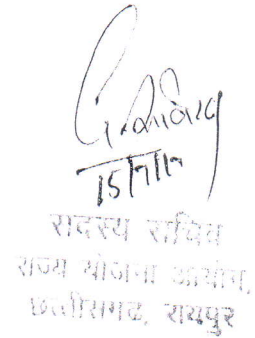 15/7/17
सदस्य सचिव
राज्य योजना आयोग,
छत्तीसगढ, रायपुर